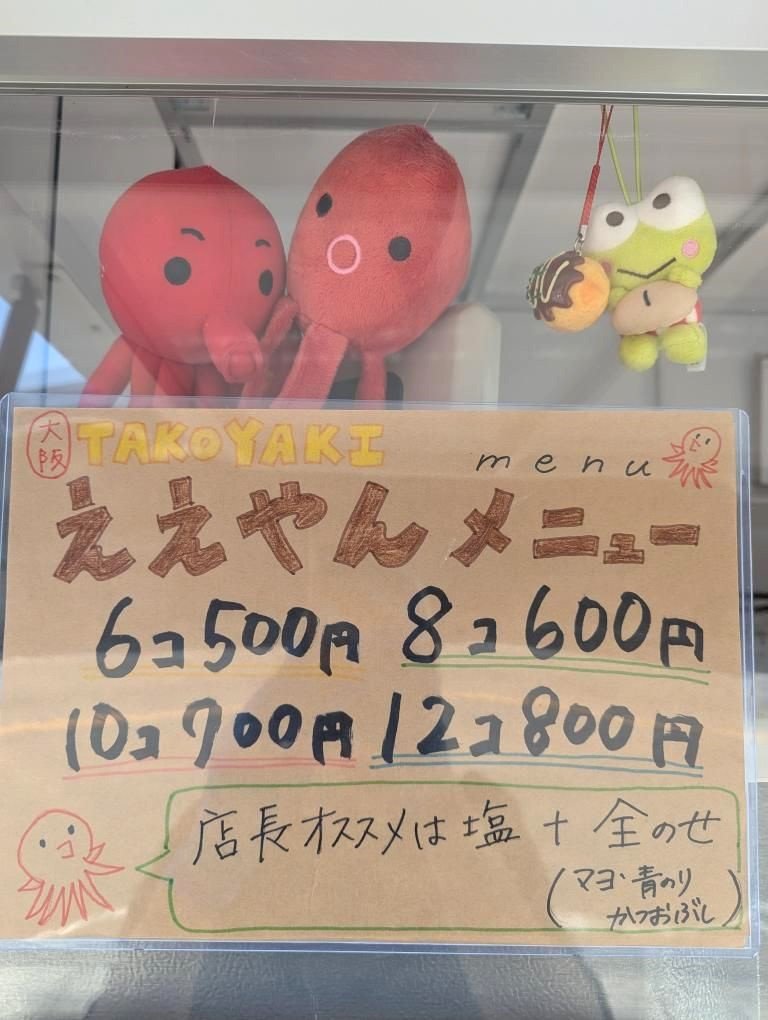 大阪 TAKOYAKI menu
ええやんメニュー
6コ500円 8コ600円
10コ700円 12コ800円
店長オススメは塩+全のせ
(マヨ・青のり
かつおぶし)